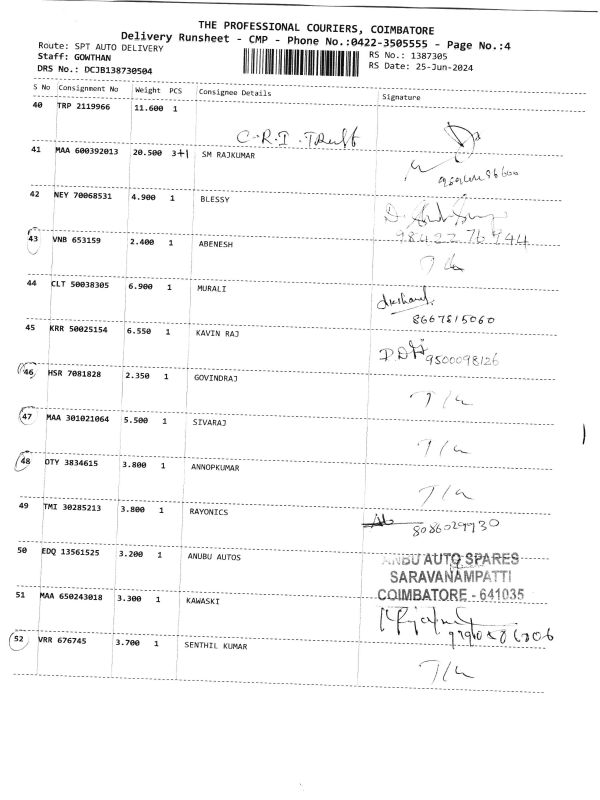 THE PROFESSIONAL COURIERS, COIMBATORE
Delivery Runsheet - CMP - Phone No.:0422-3505555 - Page No.:4
Route: SPT AUTO DELIVERY
RS No.: 1387305
Staff: GOWTHAN
RS Date: 25-Jun-2024
DRS No.: DCJB138730504
S No Consignment No Weight PCS Consignee Details Signature
40 TRP 2119966 11.600 1
C.R.I.
41 MAA 600392013 20.500 3+1 SM RAJKUMAR
42 NEY 70068531 4.900 1 BLESSY
98422 76944
43 VNB 653159 2.400 1 ABENESH
44 CLT 50038305 6.900 1 MURALI
8667815060
45 KRR 50025154 6.550 1 KAVIN RAJ
9500098126
46 HSR 7081828 2.350 1 GOVINDRAJ
47 MAA 301021064 5.500 1 SIVARAJ
48 OTY 3834615 3.800 1 ANNOPKUMAR
49 TMI 30285213 3.800 1 RAYONICS
8086029930
50 EDQ 13561525 3.200 1 ANUBU AUTOS
ANBU AUTO SPARES
SARAVANAMPATTI
COIMBATORE - 641035
51 MAA 650243018 3.300 1 KAWASKI
52 VRR 676745 3.700 1 SENTHIL KUMAR